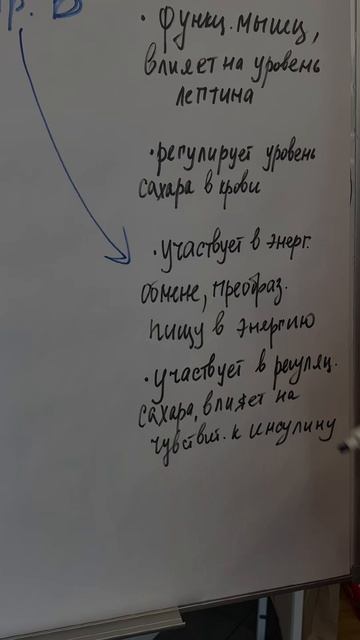 гр. В
• функц. мышц,
влияет на уровень
лептина
• регулирует уровень
сахара в крови
• участвует в энерг.
обмене, преобраз.
пищу в энергию
• участвует в регуляц.
сахара, влияет на
чувствит. к инсулину